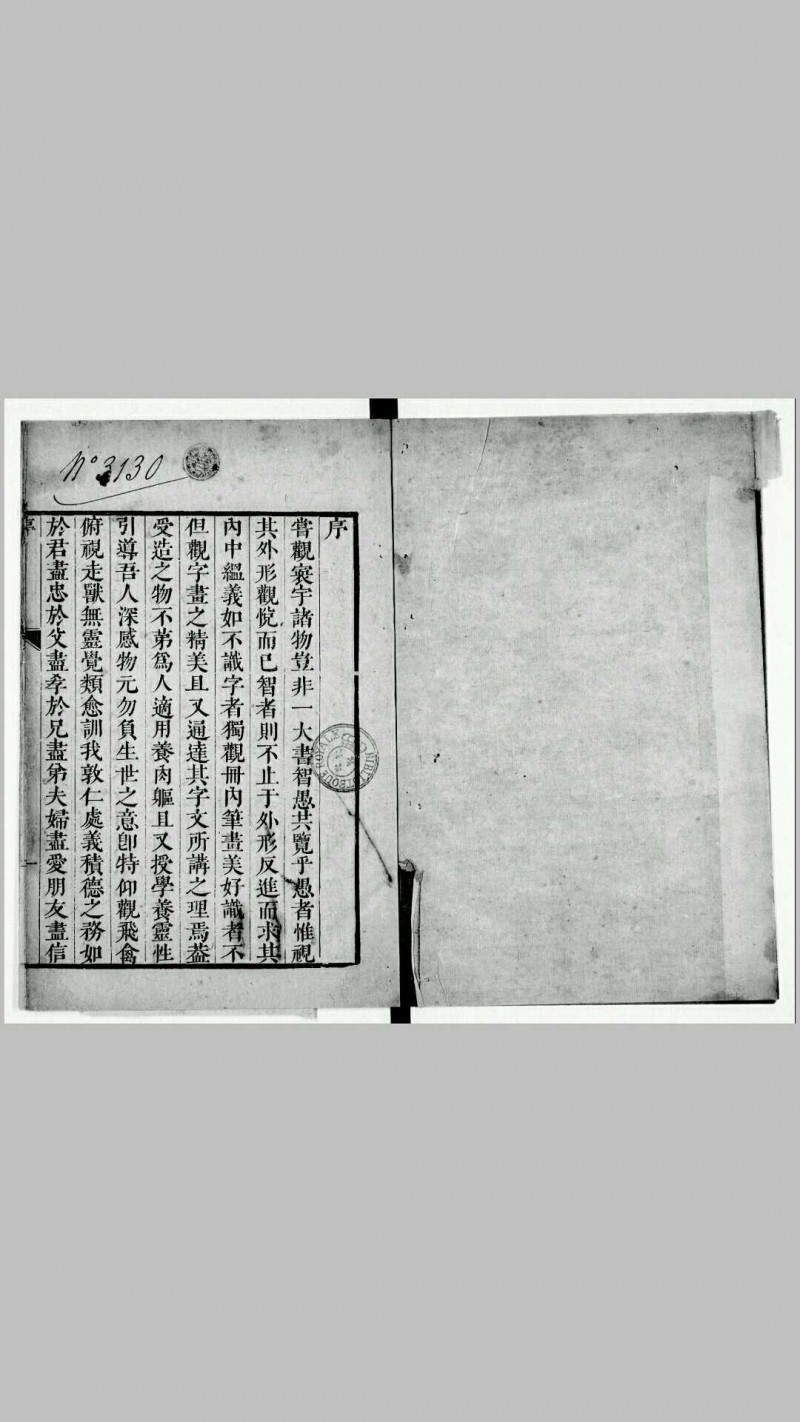 Nº 3130
序
嘗觀寰宇諸物豈非一大書智愚共覽乎愚者惟視
其外形觀悅而已智者則不止于外形反進而求其
內中緼義如不識字者獨觀冊內筆畫美好識者不
但觀字畫之精美且又通達其字文所講之理焉葢
受造之物不第爲人適用養肉軀且又授學養靈性
引導吾人深感物元勿負生世之意卽特仰觀飛禽
俯視走獸無靈覺類愈訓我敦仁處義積德之務如
於君盡忠於父盡孝於兄盡弟夫婦盡愛朋友盡信
序
一
BIBLIOTHEQUE ROYALE